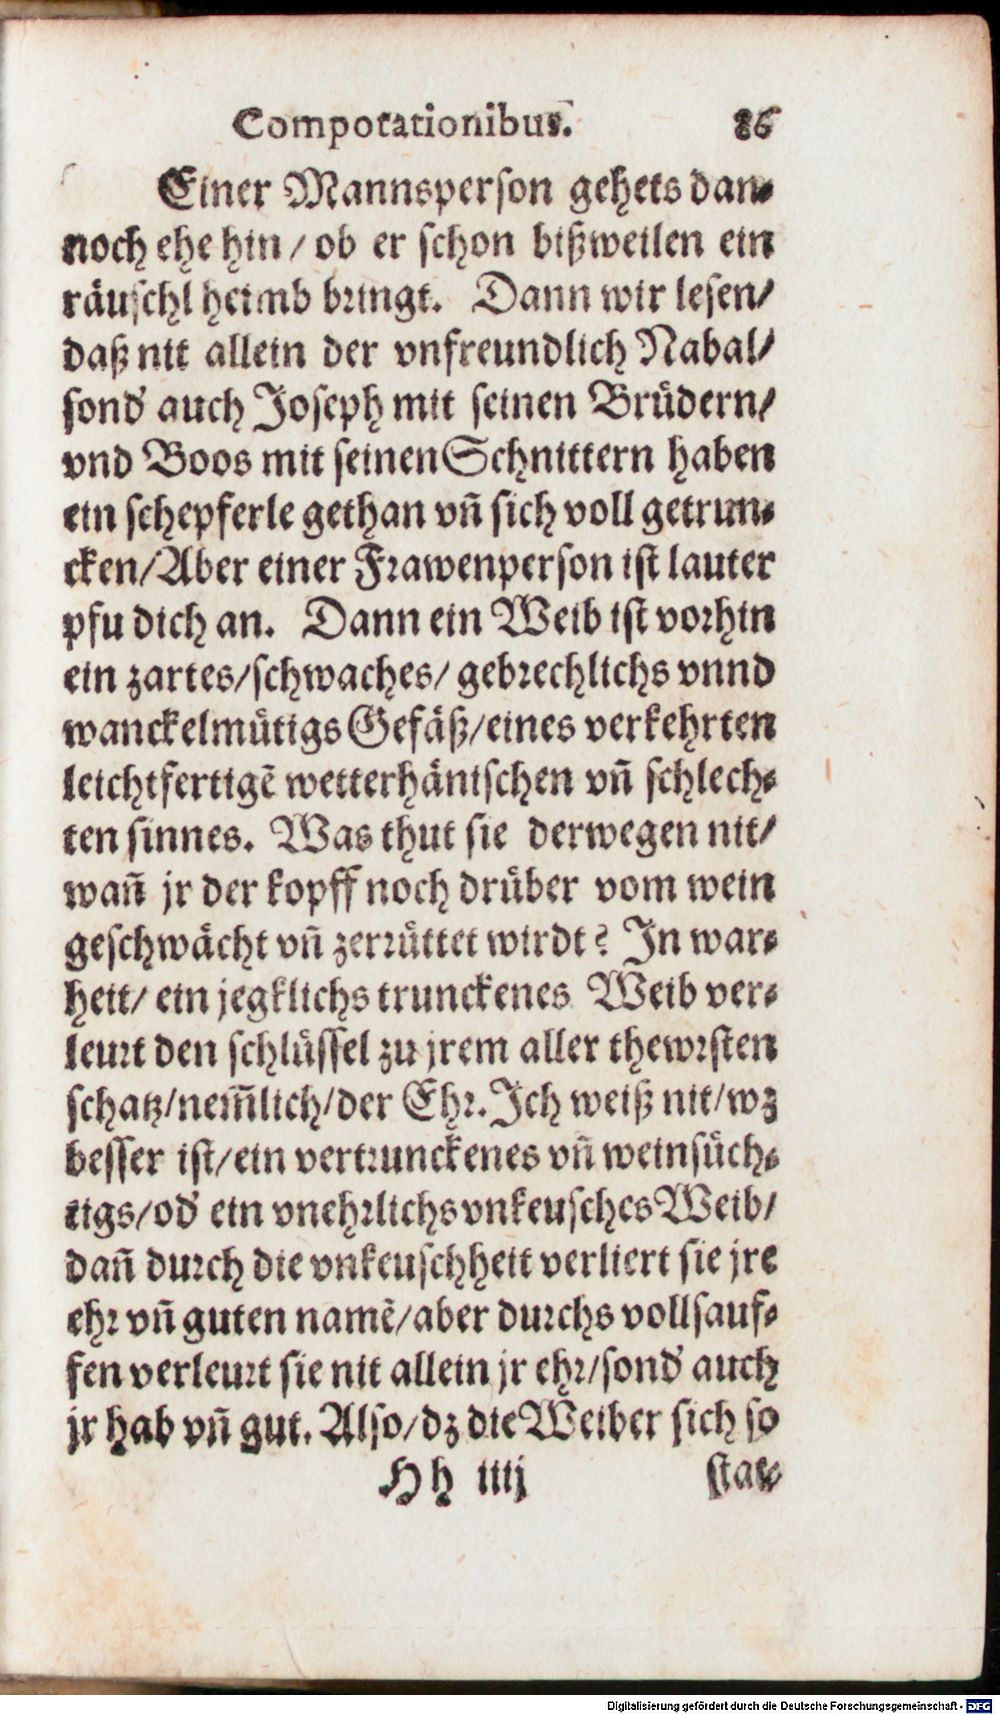 Compotationibus. 86
Einer Mannsperson gehets dan-
noch ehe hin / ob er schon bißweilen ein
räuschl heimb bringt. Dann wir lesen/
daß nit allein der vnfreundlich Nabal/
sond' auch Joseph mit seinen Brüdern/
vnd Boos mit seinen Schnittern haben
ein schepferle gethan vñ sich voll getrun-
cken/Aber einer Frawenperson ist lauter
pfu dich an. Dann ein Weib ist vorhin
ein zartes/schwaches/ gebrechlichs vnnd
wanckelmütigs Gefäß/eines verkehrten
leichtfertigẽ wetterhänischen vñ schlech-
ten sinnes. Was thut sie derwegen nit/
wañ jr der kopff noch drüber vom wein
geschwächt vñ zerrüttet wirdt? In war-
heit/ ein jegklichs trunckenes Weib ver-
leurt den schlüssel zu jrem aller thewrsten
schatz/nem̃lich/der Ehr. Ich weiß nit/wz
besser ist/ein vertrunckenes vñ weinsüch-
tigs/od' ein vnehrlichs vnkeusches Weib/
dañ durch die vnkeuschheit verliert sie jre
ehr vñ guten namẽ/aber durchs vollsauf-
fen verleurt sie nit allein jr ehr/sond' auch
jr hab vñ gut. Also/dz die Weiber sich so
Hh iiij stat-
Digitalisierung gefördert durch die Deutsche Forschungsgemeinschaft - DFG